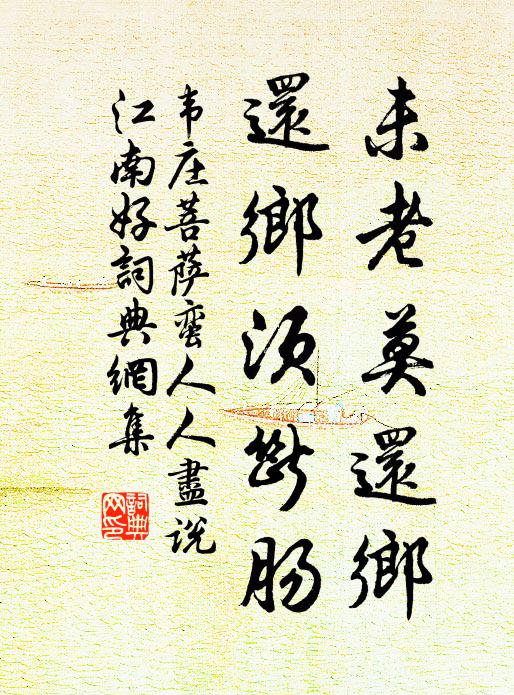 未老莫還鄉
還鄉須斷腸
韦庄菩萨蛮人人盡说
江南好詞典網集
詞典网印